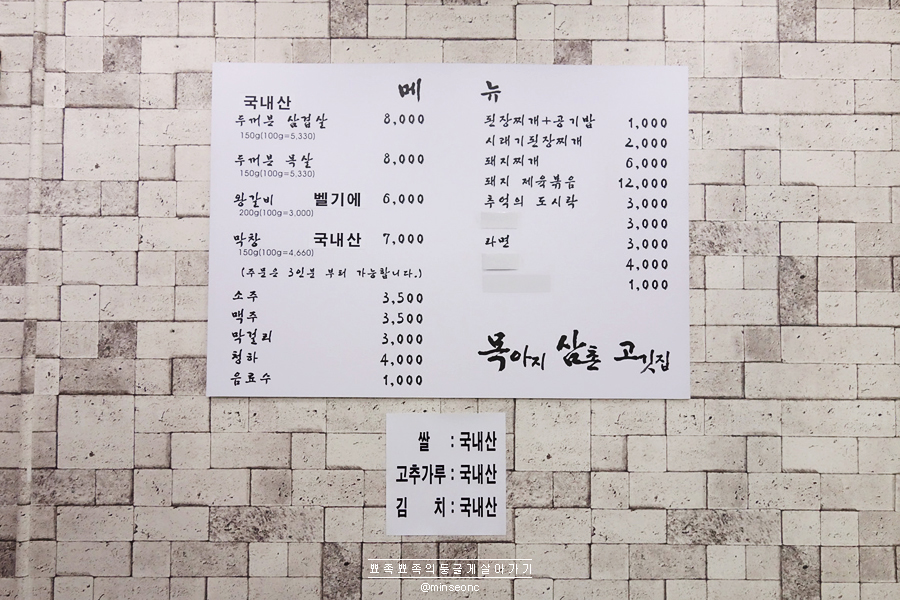 메 뉴
국내산
두꺼분 삼겹살 8,000
150g(100g=5,330)
두꺼분 목살 8,000
150g(100g=5,330)
왕갈비 벨기에 6,000
200g(100g=3,000)
막창 국내산 7,000
150g(100g=4.660)
(주문은 3인분 부터 가능합니다.)
소주 3,500
맥주 3,500
막걸리 3,000
청하 4,000
음료수 1,000
된장찌개+공기밥 1,000
시래기된장찌개 2,000
돼지찌개 6,000
돼지 제육볶음 12,000
추억의 도시락 3,000
3,000
라면 3,000
4,000
1,000
목아지 삼촌 고깃집
쌀 : 국내산
고추가루 : 국내산
김 치 : 국내산
뾰족뾰족의둥글게살아가기
@minseonc